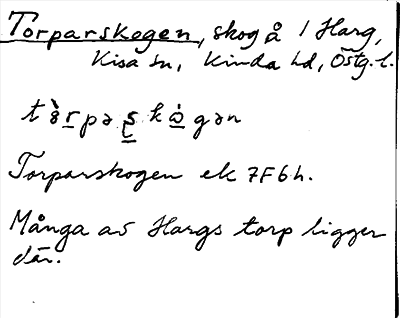 Torparskogen, skog å 1 Harg,
Kisa sn, Kinda hd, Östg. l.
Torparskogen ek 7F6h.
Många av Hargs torp ligger
där.